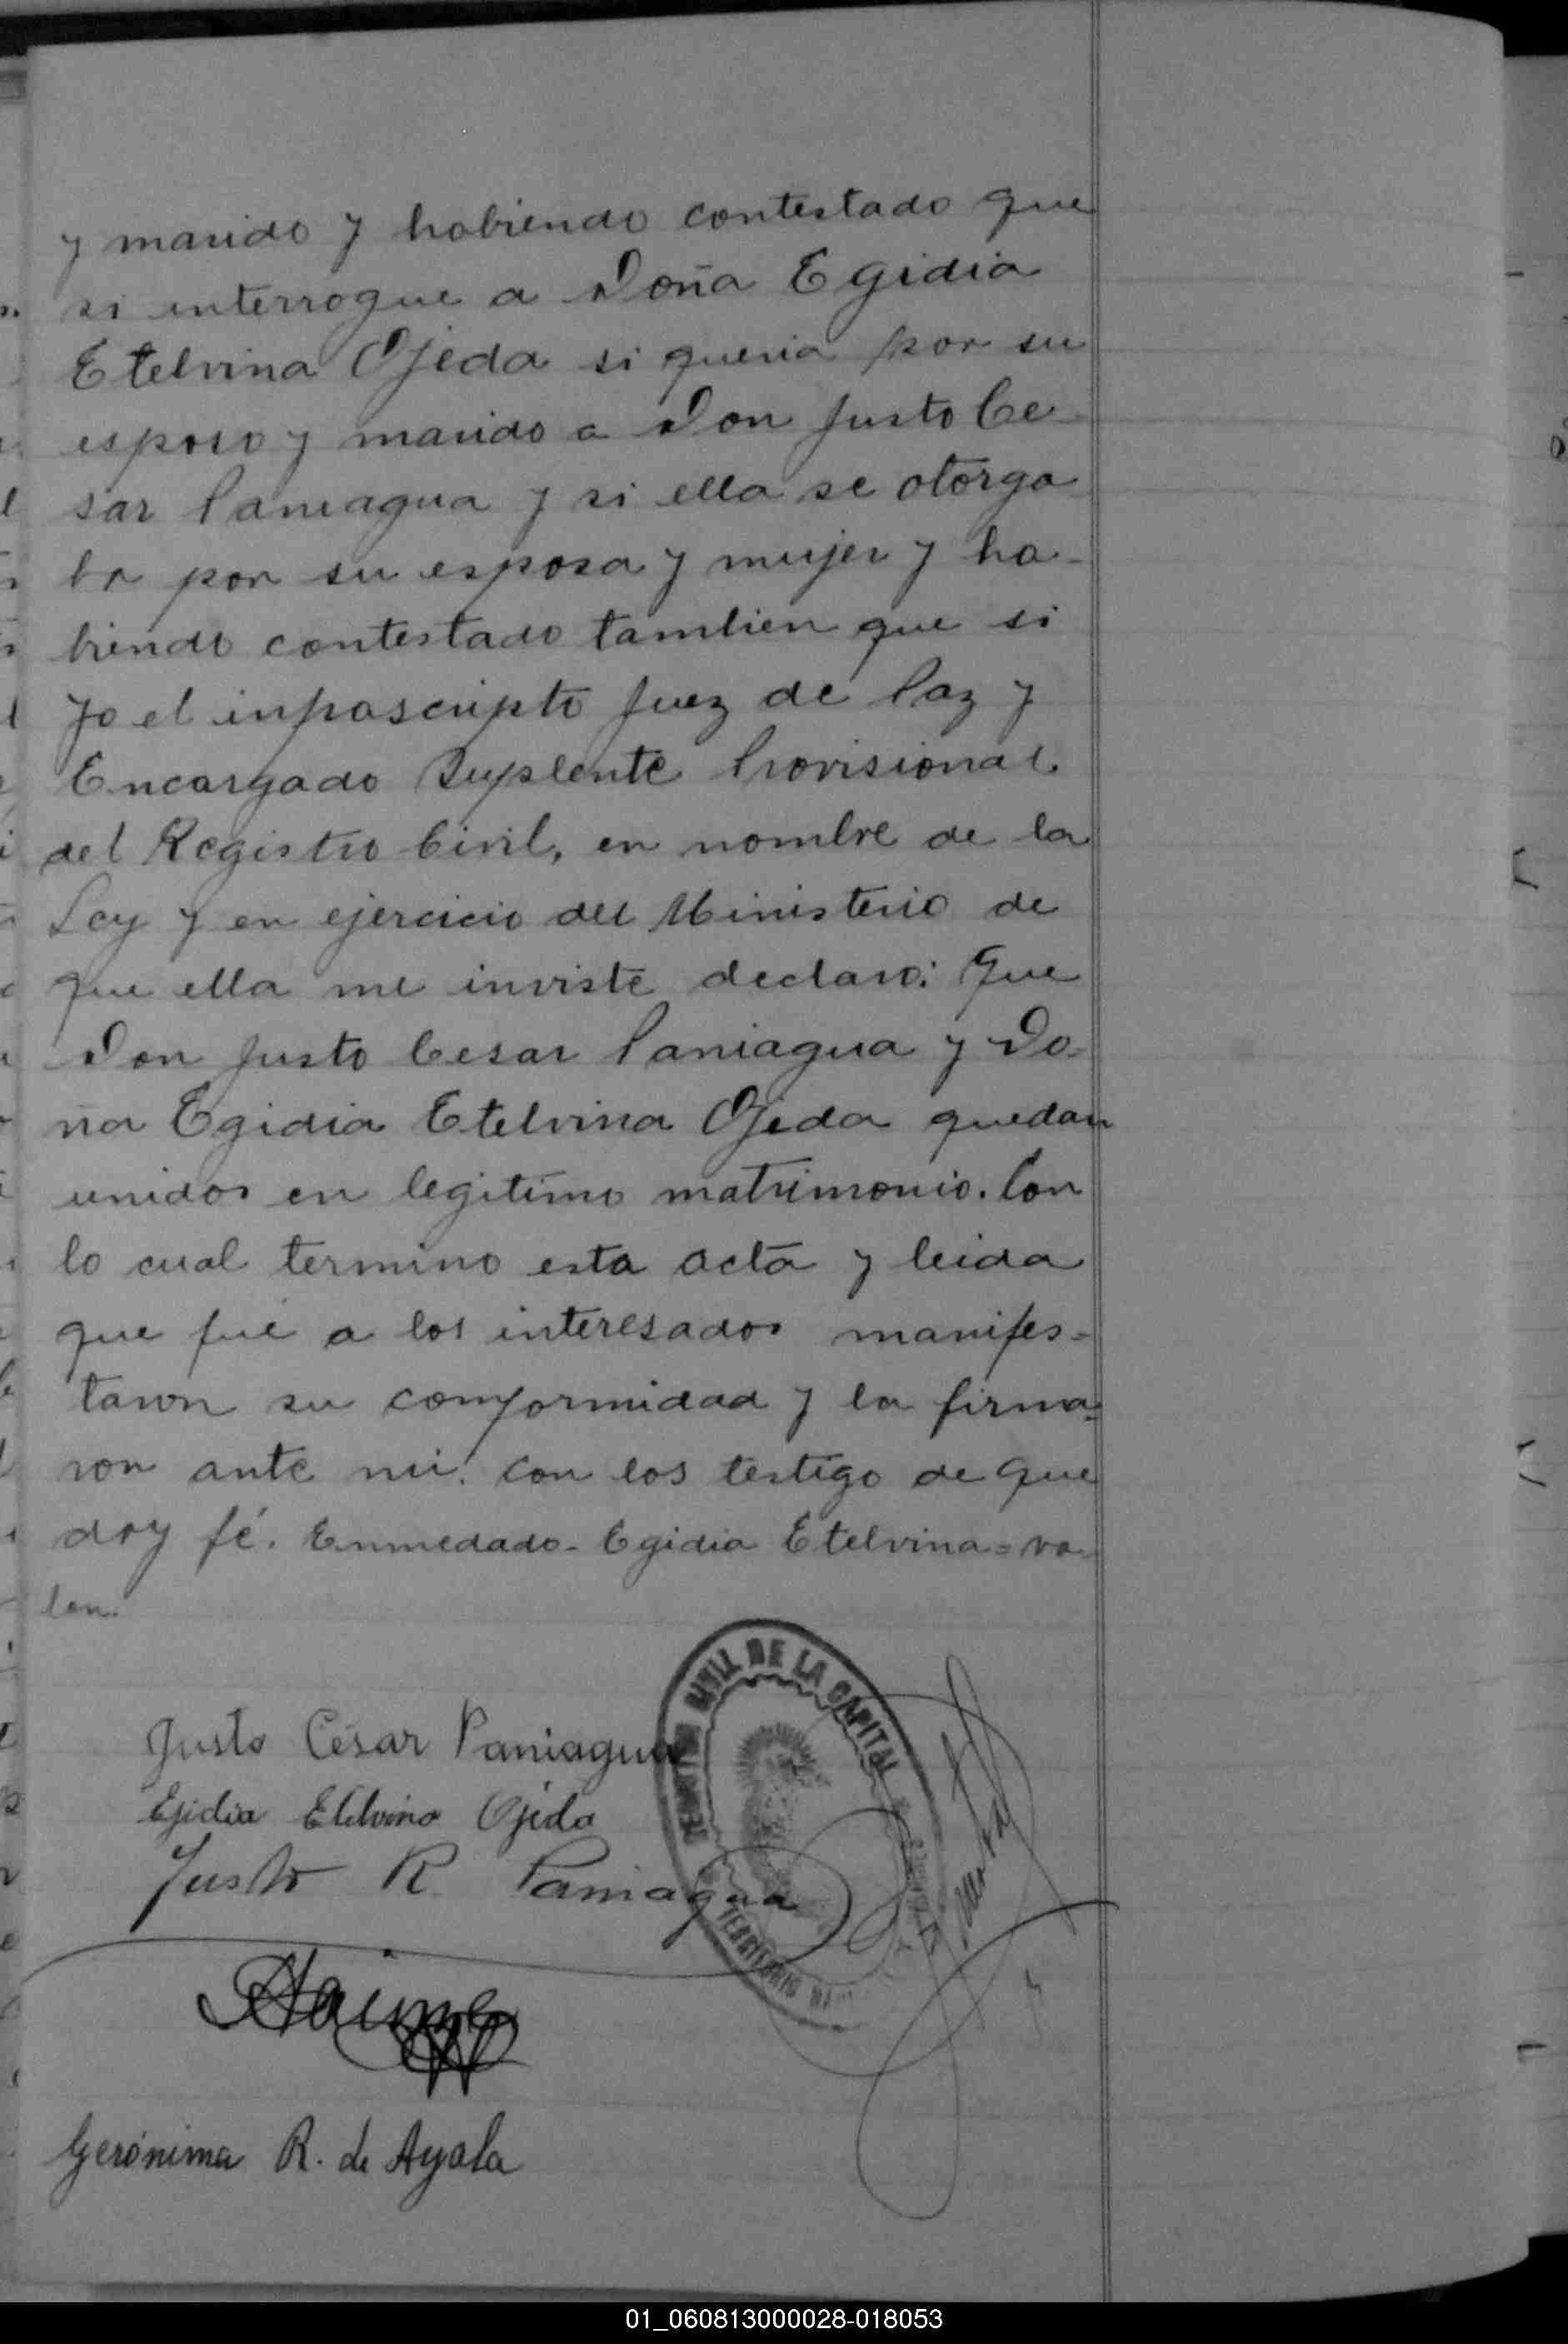 y marido y habiendo contestado que
si interrogue a Doña Egidia
Etelvina Ojeda si queria por su
esposo y marido a Don Justo Ce-
sar Paniagua y si ella se otorga
ba por su esposa y mujer y ha-
biendo contestado tambien que si
yo el infrascripto Juez de Paz y
Encargado Suplente Provisional
del Registro Civil, en nombre de la
Ley y en ejercicio del Ministerio de
que ella me inviste declaro: Que
Don Justo Cesar Paniagua y Do-
ña Egidia Etelvina Ojeda quedan
unidos en legitimo matrimonio. Con
lo cual termino esta acta y leida
que fué a los interesados manifes-
taron su conformidad y la firma=
ron ante mi. con los testigo de que
doy fé. Enmedado- Egidia Etelvina = va-
len.
REGISTRO CIVIL DE LA CAPITAL
TERRITORIO
Justo César Paniagua
Ejidia Etelvina Ojeda
Justo R. Paniagua
Gerónima R. de Ayala
01_060813000028-018053